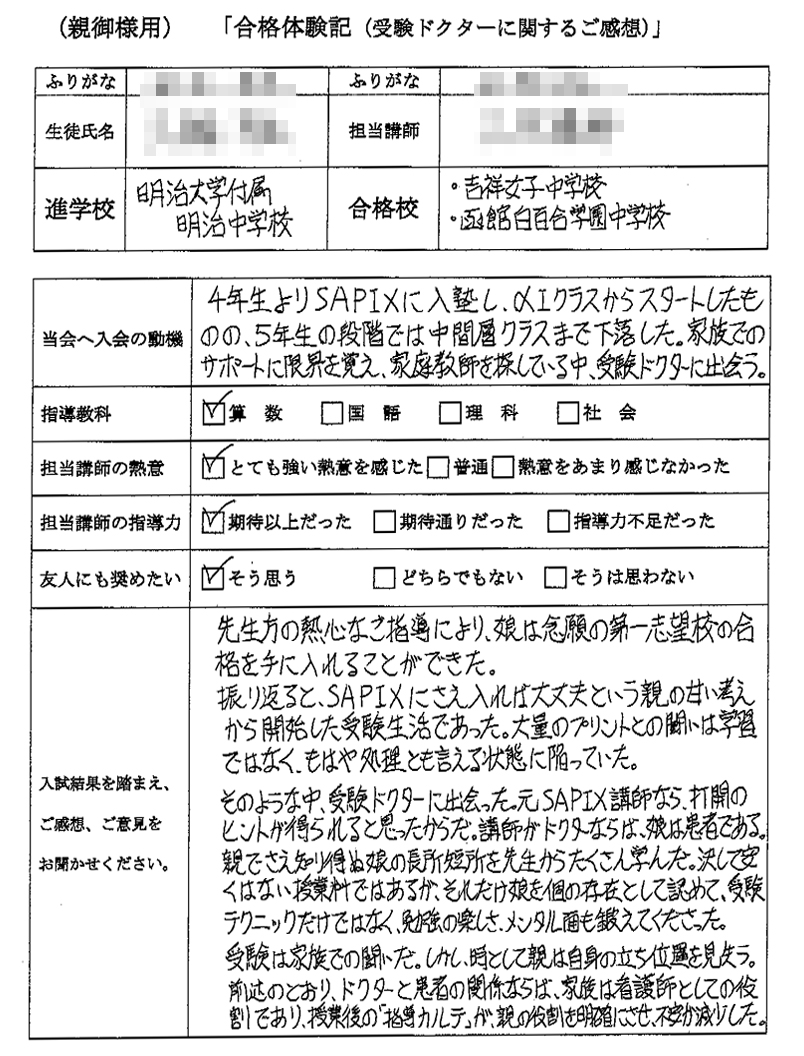 （親御様用）　「合格体験記（受験ドクターに関するご感想）」
ふりがな　ふりがな
生徒氏名　担当講師
進学校　明治大学付属　明治中学校　合格校　・吉祥女子中学校　・函館白百合学園中学校
当会へ入会の動機
4年生よりSAPIXに入塾し、α1クラスからスタートしたも
のの、5年生の段階では中間層クラスまで下落した。家族での
サポートに限界を覚え、家庭教師を探している中、受験ドクターに出会う。
指導教科　☑算　数　□国　語　□理　科　□社　会
担当講師の熱意　☑とても強い熱意を感じた　□普通　□熱意をあまり感じなかった
担当講師の指導力　☑期待以上だった　□期待通りだった　□指導力不足だった
友人にも奨めたい　☑そう思う　□どちらでもない　□そうは思わない
入試結果を踏まえ、
ご感想、ご意見を
お聞かせください。
先生方の熱心なご指導により、娘は念願の第一志望校の合
格を手に入れることができた。
振り返ると、SAPIXにさえ入れば大丈夫という親の甘い考え
から開始した受験生活であった。大量のプリントとの闘いは学習
ではなく、もはや処理とも言える状態に陥っていた。
そのような中、受験ドクターに出会った。元SAPIX講師なら、打開の
ヒントが得られると思ったからだ。講師がドクターならば、娘は患者である。
親でさえ知り得ぬ娘の長所短所を先生からたくさん学んだ。決して安
くはない授業料ではあるが、それだけ娘を個の存在として認めて、受験
テクニックだけではなく、勉強の楽しさ、メンタル面も鍛えてくださった。
受験は家族での闘いだ。しかし、時として親は自身の立ち位置を見失う。
前述のとおり、ドクターと患者の関係ならば、家族は看護師としての役
割であり、授業後の「指導カルテ」が、親の役割を明確にさせ、不安が減少した。